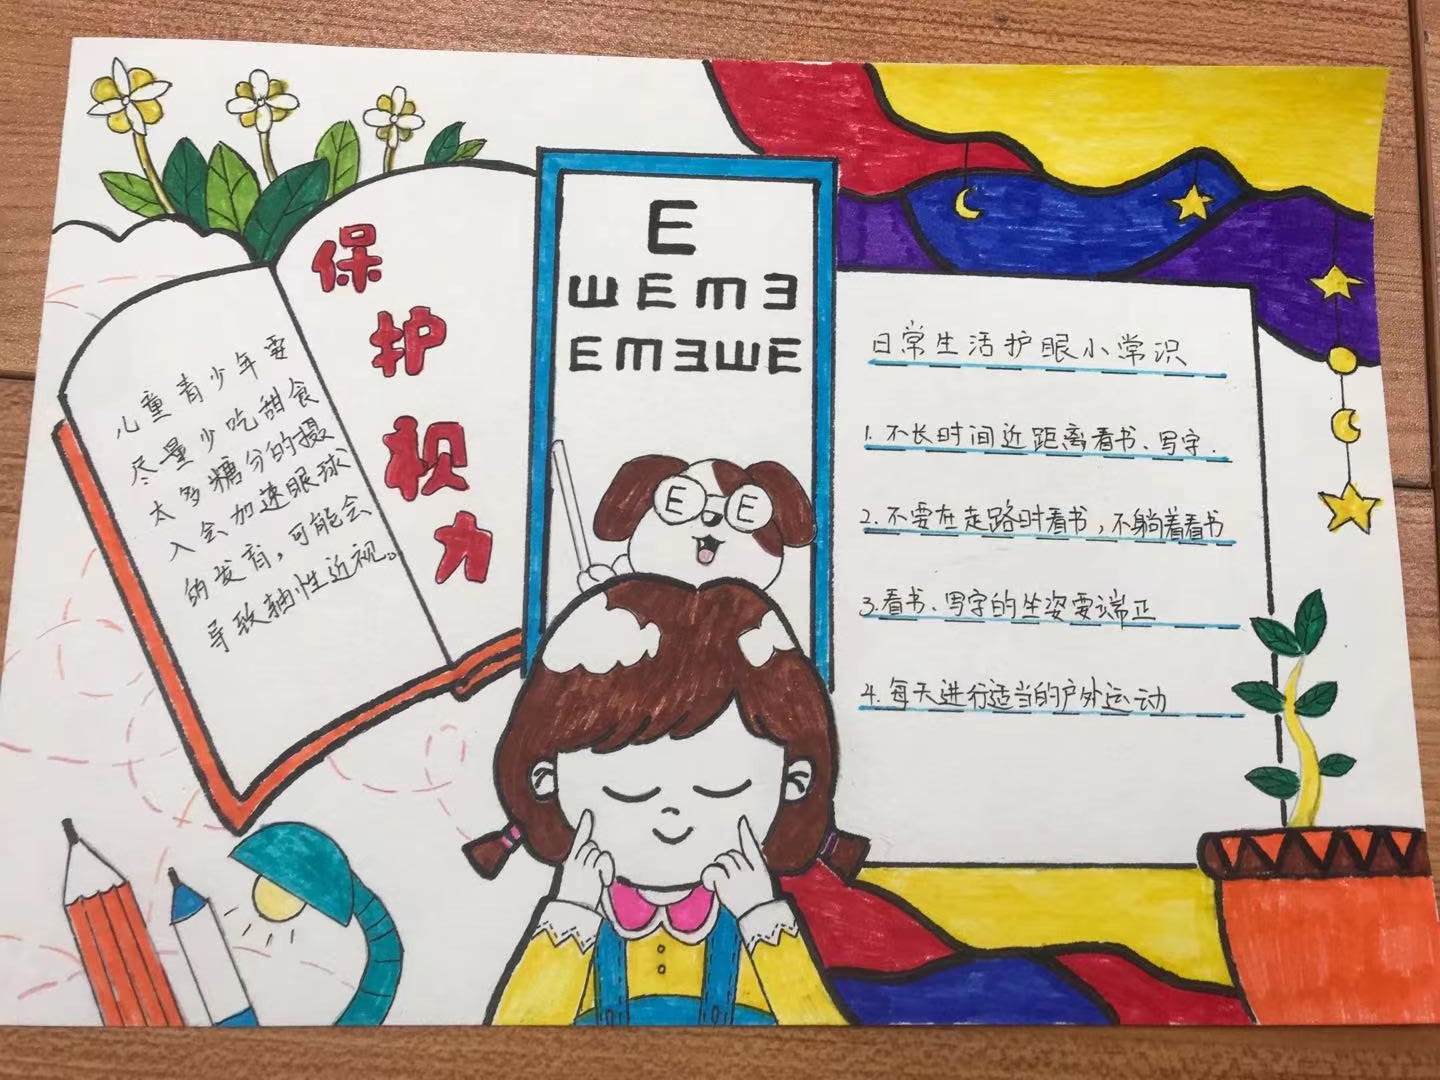 保护视力
儿童青少年要
尽量少吃甜食
太多糖分的摄
入会加速眼球
的发育,可能会
导致轴性近视。
E
ШEmƎ
EmƎШE
E E
日常生活护眼小常识
1.不长时间近距离看书、写字.
2.不要在走路时看书,不躺着看书
3.看书、写字的坐姿要端正
4.每天进行适当的户外运动